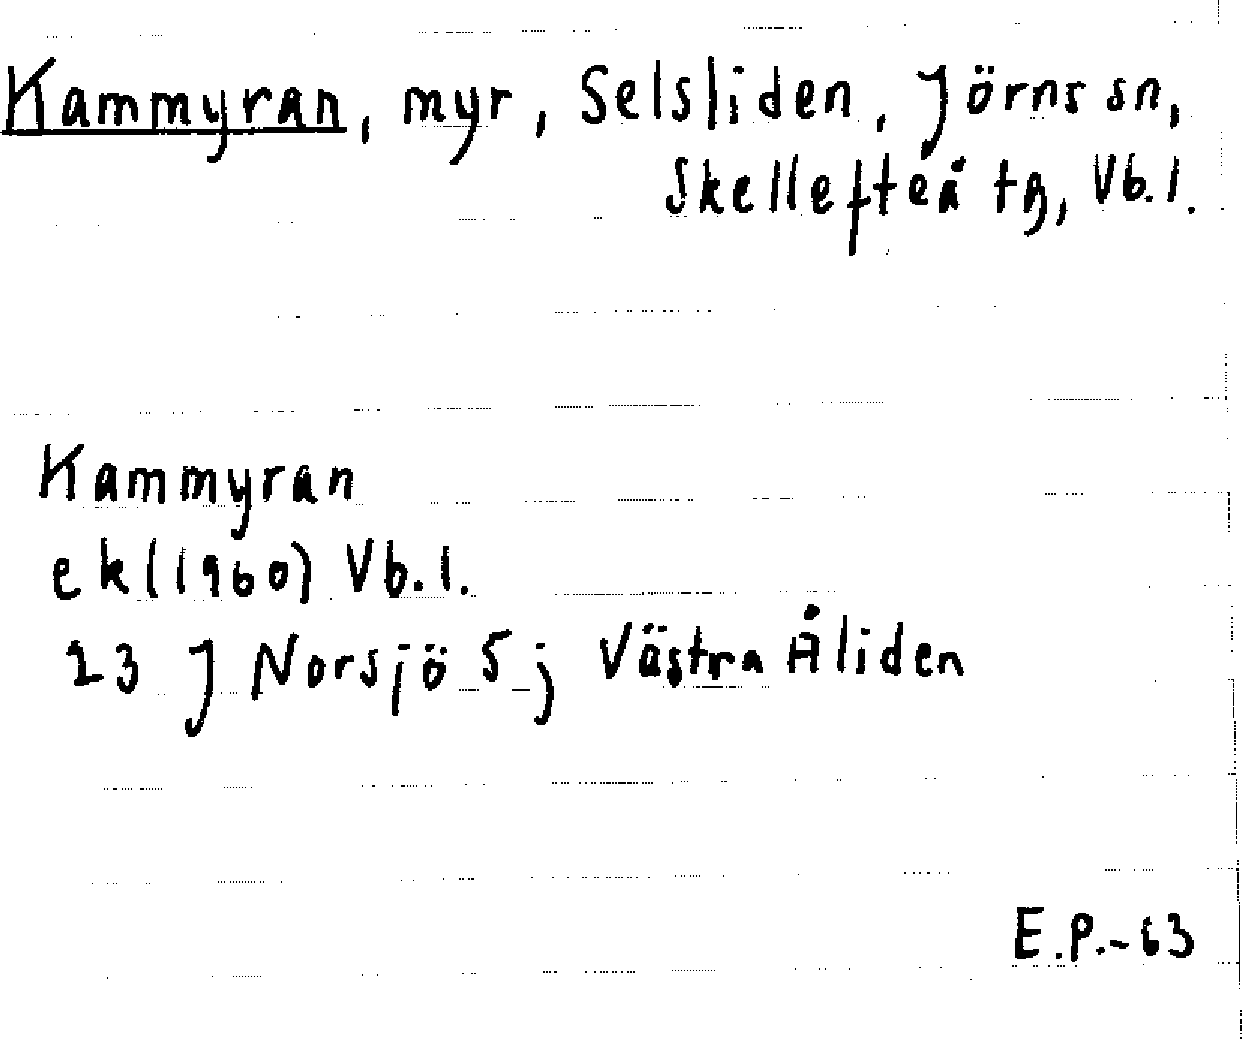 Kammyran, myr, Selsliden, Jörns sn,
Skellefteå tg, Vb.l.
Kammyran
ek (1960) Vb.l.
23 J Norsjö 5 j Västra Åliden
E.P.-63